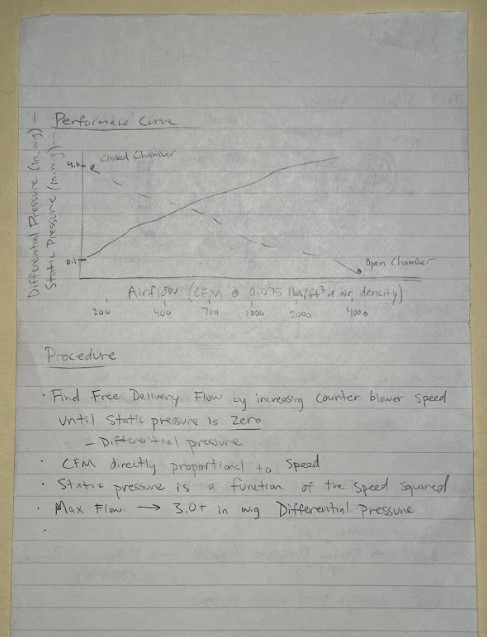 Performance Curve
Differential Pressure (in.wg) —
Static Pressure (in.w.g) --
4.0
Closed Chamber
0.1
Open Chamber
Airflow (CFM @ 0.075 lbs/ft³ air density)
200 400 700 1000 2000 4000
Procedure
· Find Free Delivery Flow by increasing counter blower speed
until static pressure is Zero
– Differential pressure
· CFM directly proportional to speed
· Static pressure is a function of the speed squared
· Max Flow → 3.0+ in wg Differential Pressure
·